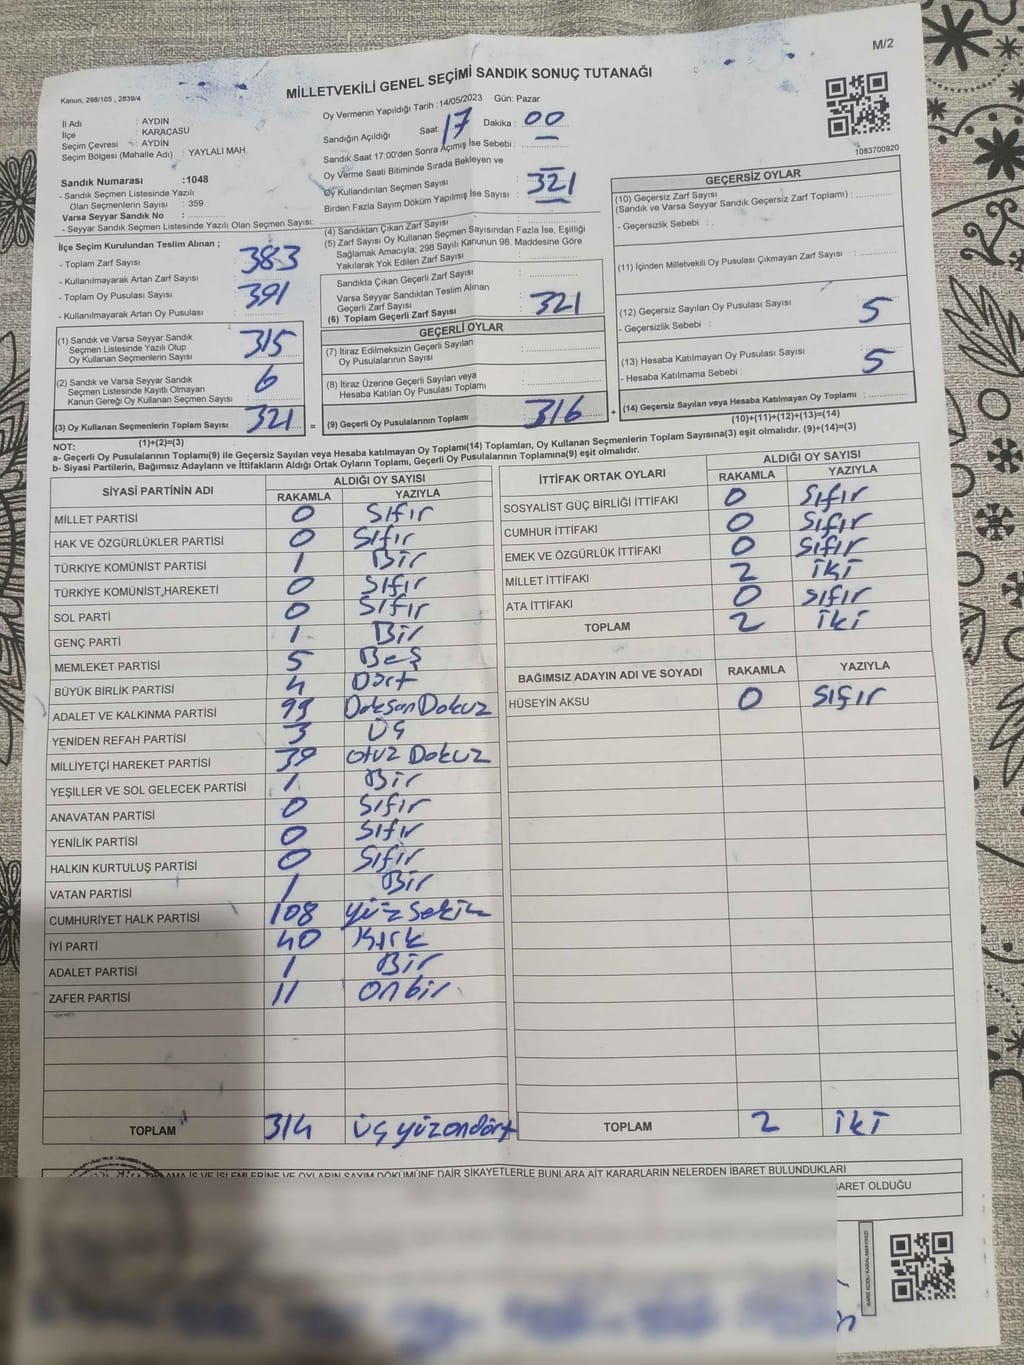 M/2
MİLLETVEKİLİ GENEL SEÇİMİ SANDIK SONUÇ TUTANAĞI
Kanun, 298/105 , 2839/4
İl Adı : AYDIN
İlçe : KARACASU
Seçim Çevresi : AYDIN
Seçim Bölgesi (Mahalle Adı) : YAYLALI MAH.
Sandık Numarası :1048
- Sandık Seçmen Listesinde Yazılı
Olan Seçmenlerin Sayısı : 359
Varsa Seyyar Sandık No :
- Seyyar Sandık Seçmen Listesinde Yazılı Olan Seçmen Sayısı:
Oy Vermenin Yapıldığı Tarih :14/05/2023 Gün: Pazar
Sandığın Açıldığı Saat: 17 Dakika : 00
Sandık Saat 17:00'den Sonra Açılmış İse Sebebi :
Oy Verme Saati Bitiminde Sırada Bekleyen ve
Oy Kullandırılan Seçmen Sayısı : 321
Birden Fazla Sayım Döküm Yapılmış İse Sayısı :
1083700920
İlçe Seçim Kurulundan Teslim Alınan ;
- Toplam Zarf Sayısı : 383
- Kullanılmayarak Artan Zarf Sayısı :
- Toplam Oy Pusulası Sayısı : 391
- Kullanılmayarak Artan Oy Pusulası :
(1) Sandık ve Varsa Seyyar Sandık
Seçmen Listesinde Yazılı Olup
Oy Kullanan Seçmenlerin Sayısı : 315
(2) Sandık ve Varsa Seyyar Sandık
Seçmen Listesinde Kayıtlı Olmayan
Kanun Gereği Oy Kullanan Seçmen Sayısı : 6
(3) Oy Kullanan Seçmenlerin Toplam Sayısı : 321
(1)+(2)=(3)
(4) Sandıktan Çıkan Zarf Sayısı :
(5) Zarf Sayısı Oy Kullanan Seçmen Sayısından Fazla İse, Eşitliği
Sağlamak Amacıyla; 298 Sayılı Kanunun 98. Maddesine Göre
Yakılarak Yok Edilen Zarf Sayısı :
Sandıkta Çıkan Geçerli Zarf Sayısı :
Varsa Seyyar Sandıktan Teslim Alınan
Geçerli Zarf Sayısı :
(6) Toplam Geçerli Zarf Sayısı : 321
GEÇERLİ OYLAR
(7) İtiraz Edilmeksizin Geçerli Sayılan
Oy Pusulalarının Sayısı :
(8) İtiraz Üzerine Geçerli Sayılan veya
Hesaba Katılan Oy Pusulası Toplamı :
= (9) Geçerli Oy Pusulalarının Toplamı : 316 +
GEÇERSİZ OYLAR
(10) Geçersiz Zarf Sayısı
(Sandık ve Varsa Seyyar Sandık Geçersiz Zarf Toplamı) :
- Geçersizlik Sebebi :
(11) İçinden Milletvekili Oy Pusulası Çıkmayan Zarf Sayısı :
(12) Geçersiz Sayılan Oy Pusulası Sayısı : 5
- Geçersizlik Sebebi :
(13) Hesaba Katılmayan Oy Pusulası Sayısı : 5
- Hesaba Katılmama Sebebi :
(14) Geçersiz Sayılan veya Hesaba Katılmayan Oy Toplamı :
(10)+(11)+(12)+(13)=(14)
NOT:
a- Geçerli Oy Pusulalarının Toplamı(9) ile Geçersiz Sayılan veya Hesaba katılmayan Oy Toplamı(14) Toplamları, Oy Kullanan Seçmenlerin Toplam Sayısına(3) eşit olmalıdır. (9)+(14)=(3)
b- Siyasi Partilerin, Bağımsız Adayların ve İttifakların Aldığı Ortak Oyların Toplamı, Geçerli Oy Pusulalarının Toplamına(9) eşit olmalıdır.
SİYASİ PARTİNİN ADI ALDIĞI OY SAYISI
RAKAMLA YAZIYLA
MİLLET PARTİSİ 0 Sıfır
HAK VE ÖZGÜRLÜKLER PARTİSİ 0 Sıfır
TÜRKİYE KOMÜNİST PARTİSİ 1 Bir
TÜRKİYE KOMÜNİST HAREKETİ 0 Sıfır
SOL PARTİ 0 Sıfır
GENÇ PARTİ 1 Bir
MEMLEKET PARTİSİ 5 Beş
BÜYÜK BİRLİK PARTİSİ 4 Dört
ADALET VE KALKINMA PARTİSİ 99 Doksan Dokuz
YENİDEN REFAH PARTİSİ 3 Üç
MİLLİYETÇİ HAREKET PARTİSİ 39 otuz Dokuz
YEŞİLLER VE SOL GELECEK PARTİSİ 1 Bir
ANAVATAN PARTİSİ 0 Sıfır
YENİLİK PARTİSİ 0 Sıfır
HALKIN KURTULUŞ PARTİSİ 0 Sıfır
VATAN PARTİSİ 1 Bir
CUMHURİYET HALK PARTİSİ 108 yüz sekiz
İYİ PARTİ 40 Kırk
ADALET PARTİSİ 1 Bir
ZAFER PARTİSİ 11 on bir
TOPLAM 314 üç yüzondört
İTTİFAK ORTAK OYLARI ALDIĞI OY SAYISI
RAKAMLA YAZIYLA
SOSYALİST GÜÇ BİRLİĞİ İTTİFAKI 0 Sıfır
CUMHUR İTTİFAKI 0 Sıfır
EMEK VE ÖZGÜRLÜK İTTİFAKI 0 Sıfır
MİLLET İTTİFAKI 2 iki
ATA İTTİFAKI 0 sıfır
TOPLAM 2 iki
BAĞIMSIZ ADAYIN ADI VE SOYADI RAKAMLA YAZIYLA
HÜSEYİN AKSU 0 sıfır
TOPLAM 2 iki
AMA İŞ VE İŞLEMLERİNE VE OYLARIN SAYIM DÖKÜMÜNE DAİR ŞİKAYETLERLE BUNLARA AİT KARARLARIN NELERDEN İBARET BULUNDUKLARI
BARET OLDUĞU
KARE KODU KARALAMAYINIZ